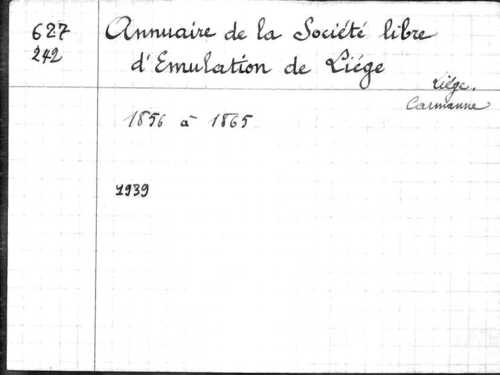 627
242
Annuaire de la Société libre
d'Emulation de Liége
Liége.
Carmanne
1856 à 1865
1939